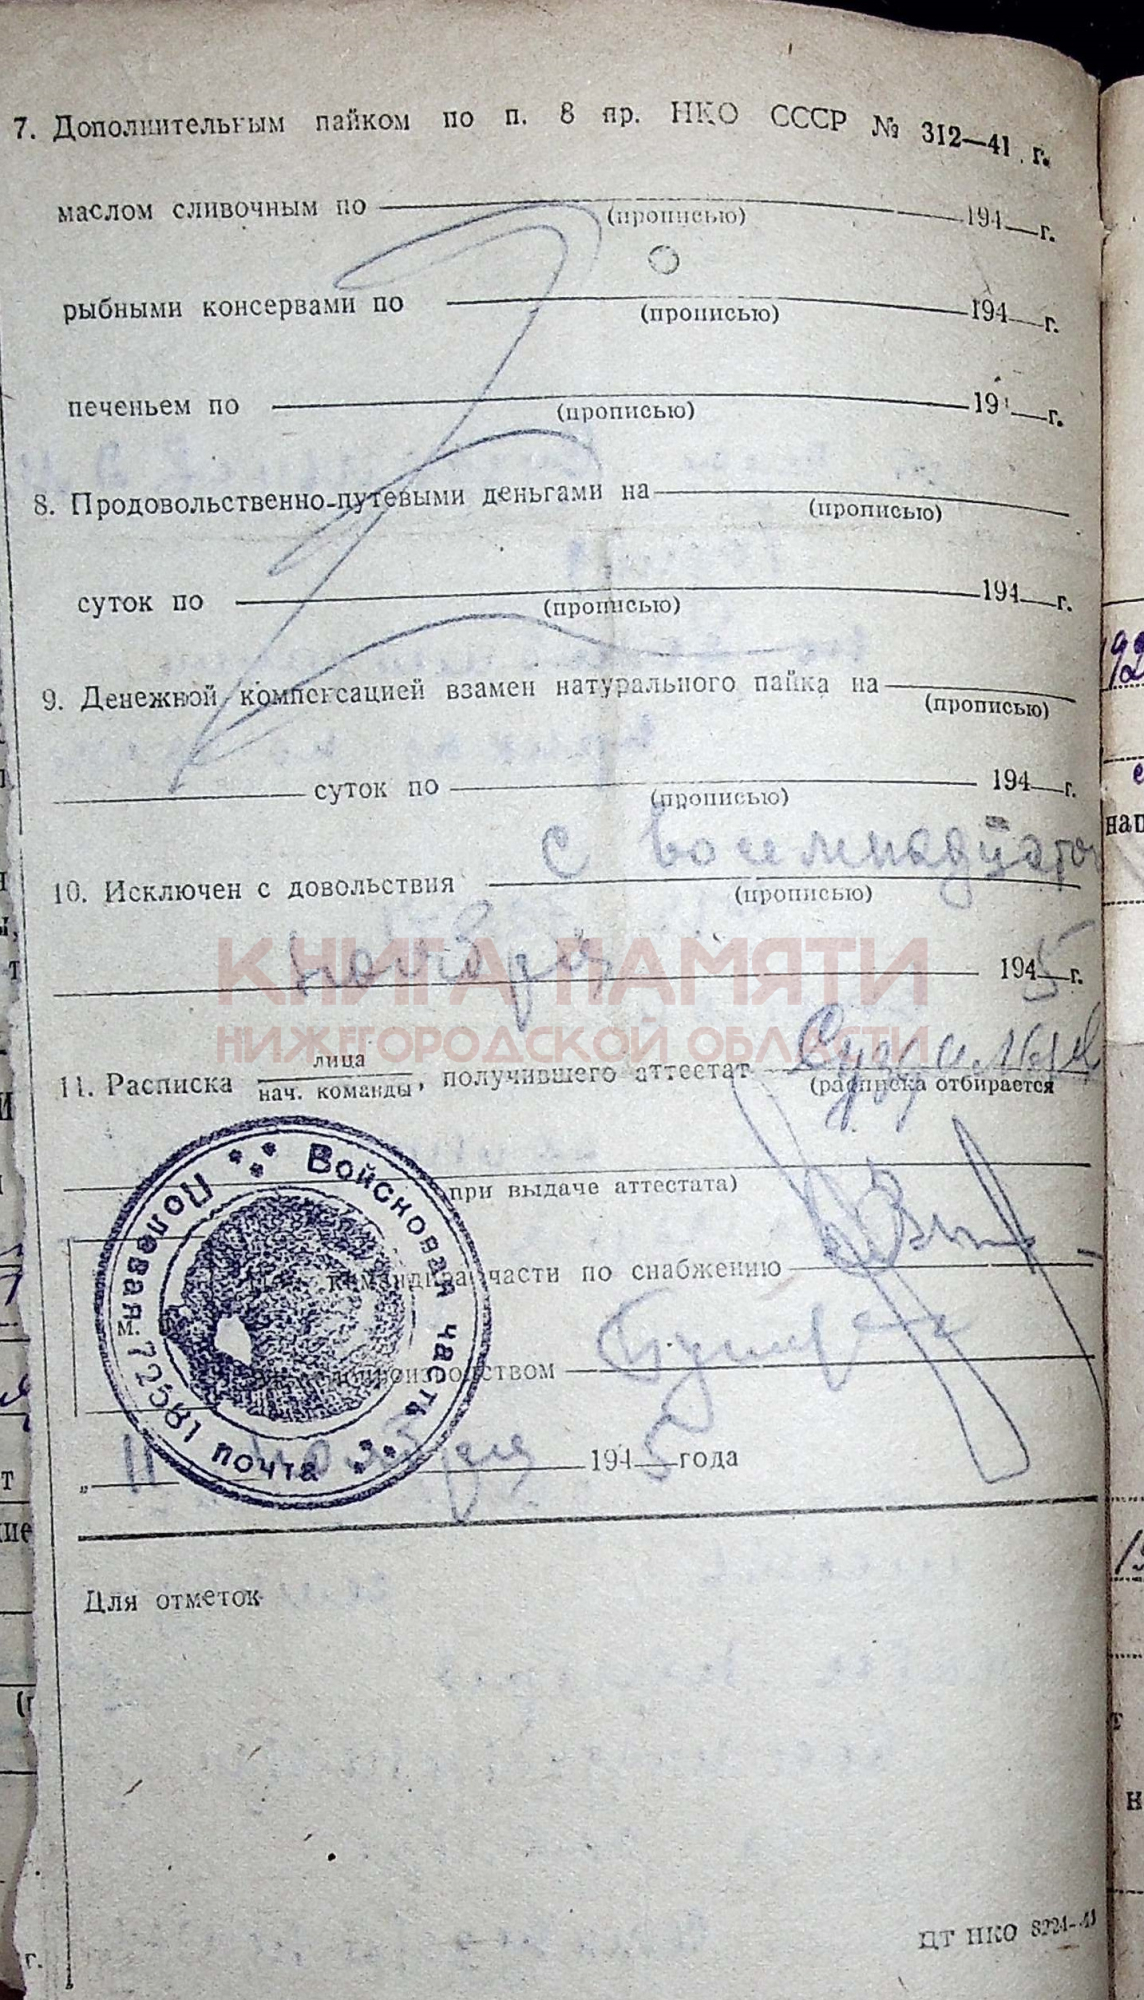 7. Дополнительным пайком по п. 8 пр. НКО СССР № 312—41 г.
маслом сливочным по 194 г.
(прописью)
рыбными консервами по 194 г.
(прописью)
печеньем по 19 г.
(прописью)
8. Продовольственно-путевыми деньгами на
(прописью)
суток по 194 г.
(прописью)
9. Денежной компенсацией взамен натурального пайка на
(прописью)
суток по 194 г.
(прописью)
10. Исключен с довольствия с восемнадцатого
(прописью)
ноября 1945 г.
КНИГА ПАМЯТИ
НИЖЕГОРОДСКОЙ ОБЛАСТИ
11. Расписка лица
нач. команды, получившего аттестат
(расписка отбирается
при выдаче аттестата)
командира части по снабжению
М.
делопроизводством
Войсковая часть
Полевая почта 72581
„ 11 ноября 1945 года
Для отметок
ЦТ НКО 8224-43